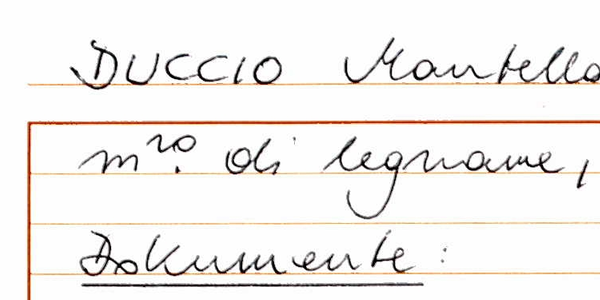 DUCCIO Mantella
mro. di legname,
Dokumente: